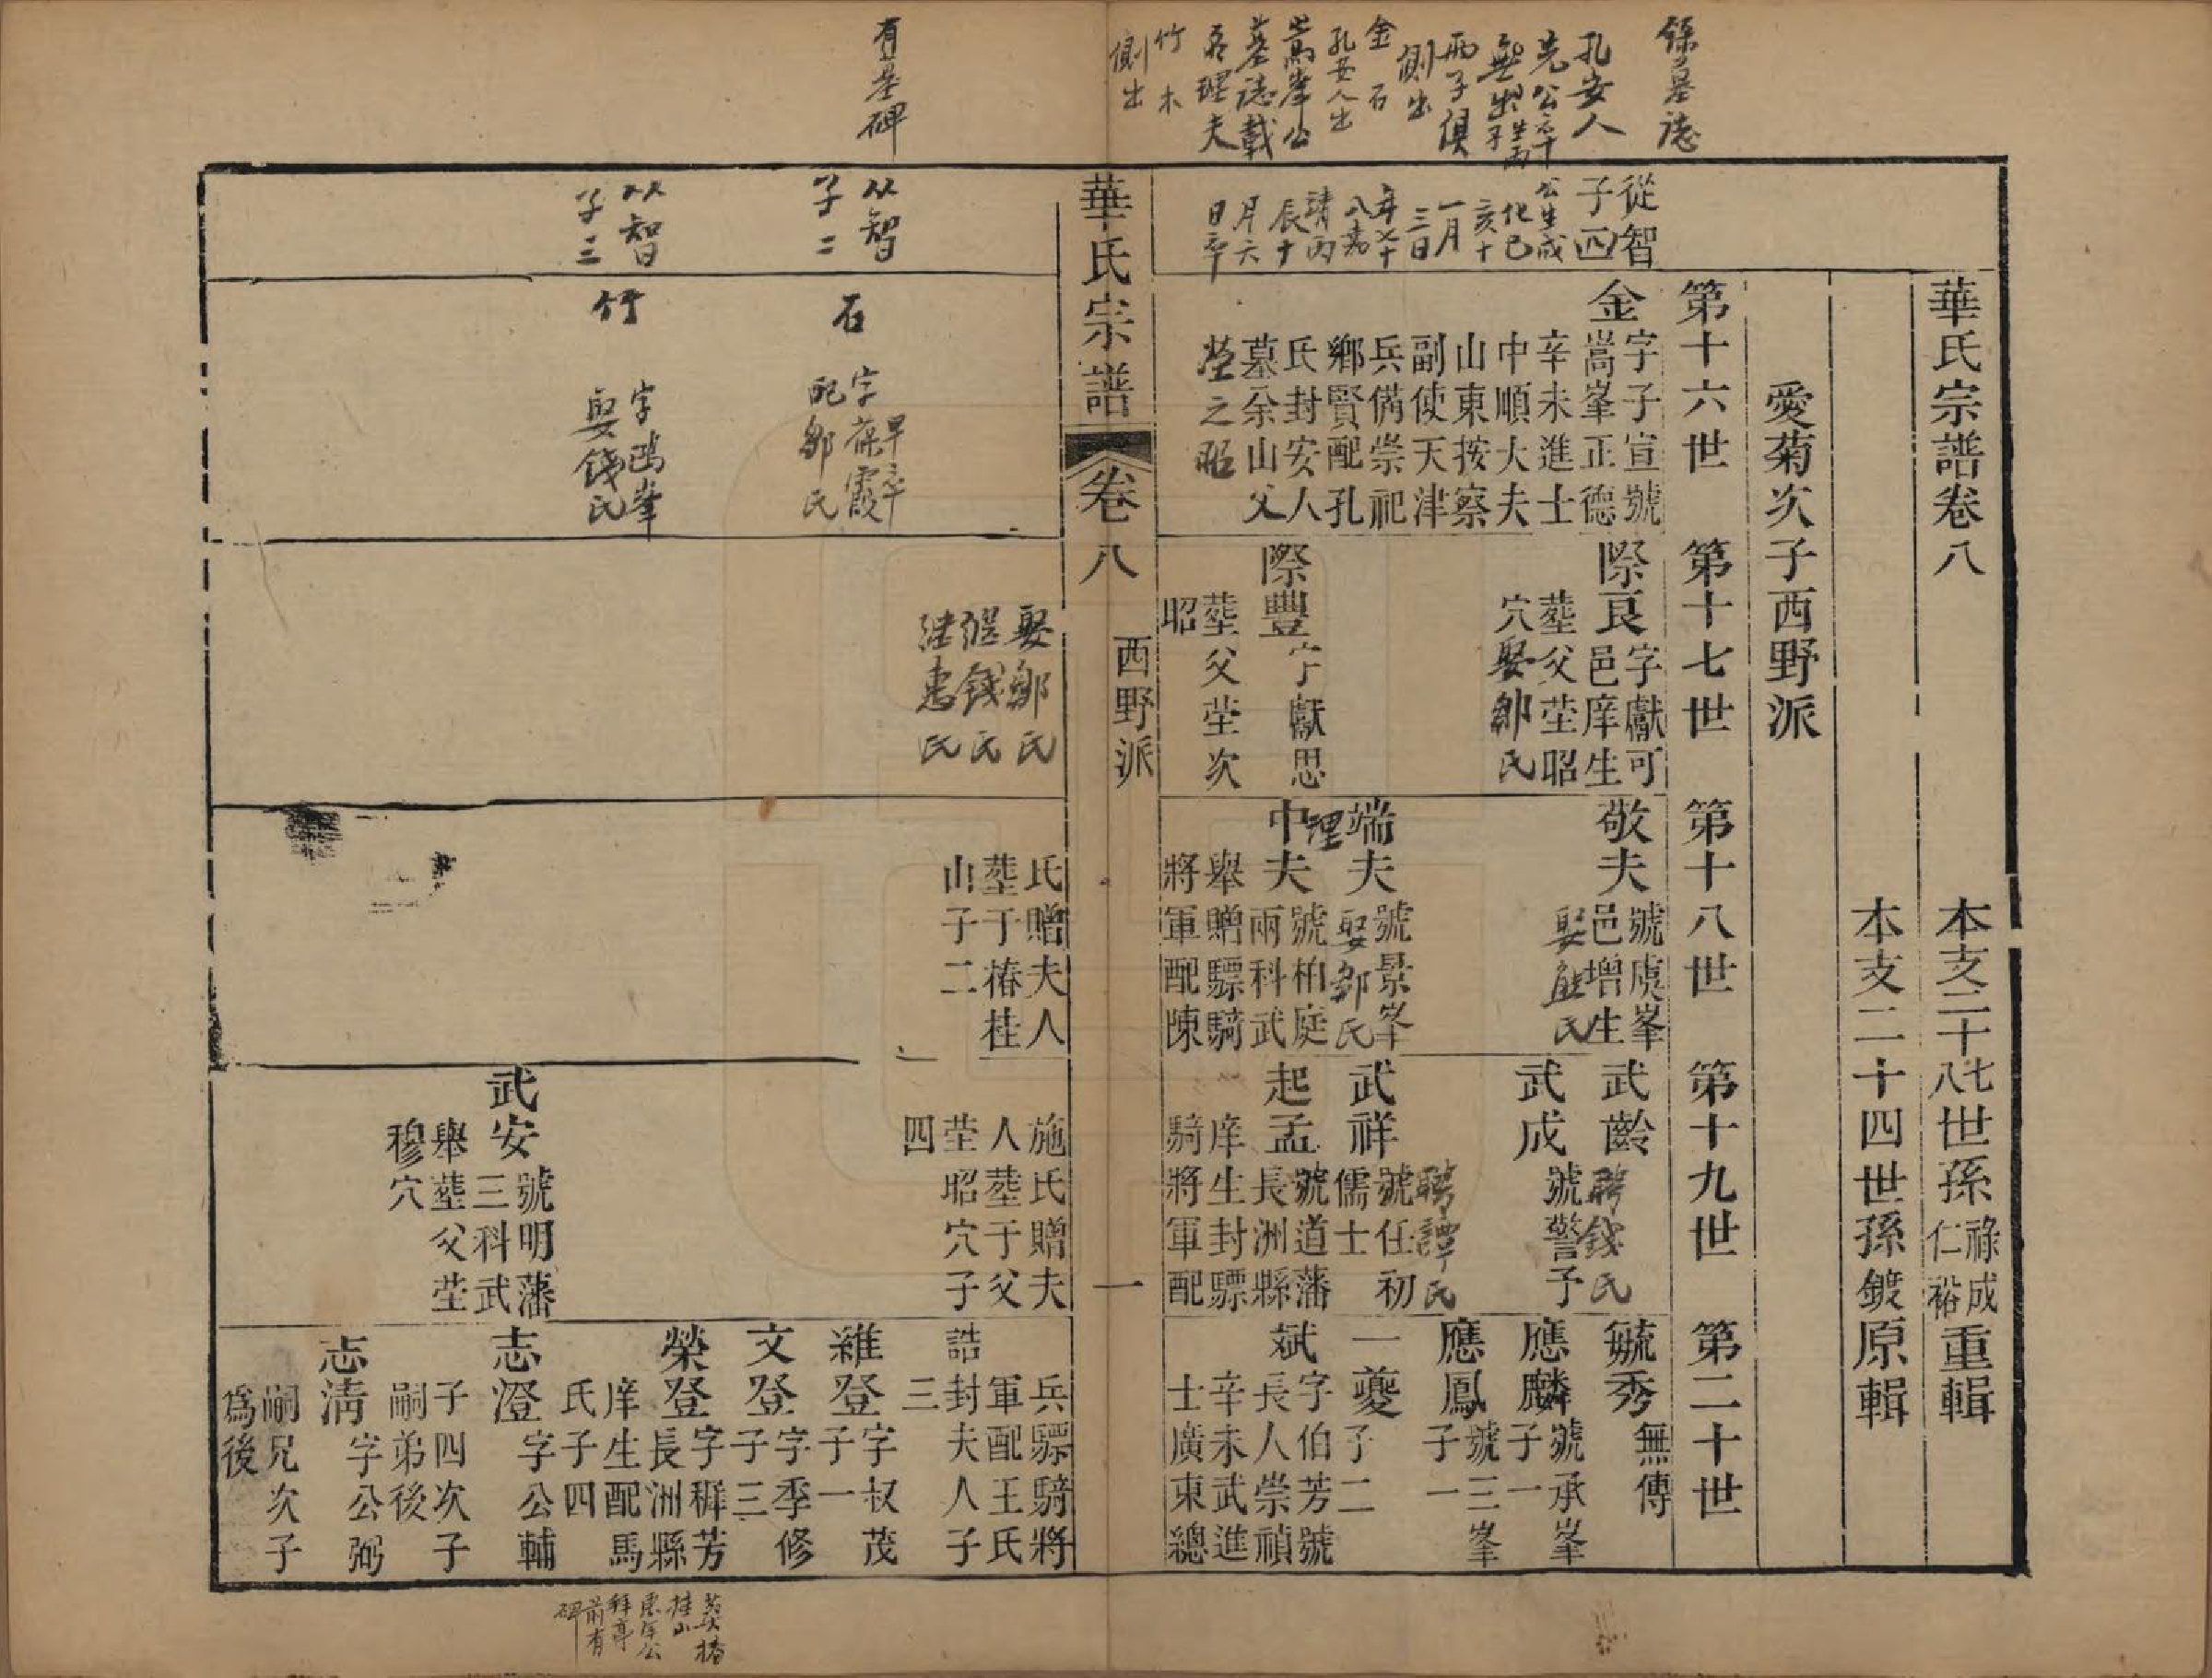 錄墓誌
孔安人
先公六十
無出生子
兩子俱
側出
金石
孔安人出
嵩峯公
墓誌載
竹木
側出
有墓碑
華氏宗譜卷八
本支二十七八世孫祿成仁裕重輯
本支二十四世孫鍍原輯
愛菊次子西野派
第十六世
第十七世
第十八世
第十九世
第二十世
從智
子四
公生成
化己
亥十
一月
三日
年七十
八嘉
靖丙
辰十
月六
日卒
金
字子宣號
嵩峯正德
辛未進士
中順大夫
山東按察
副使天津
兵備崇祀
鄉賢配孔
氏封安人
墓余山父
塋之昭
際良
字獻可
邑庠生
葬父塋昭
穴娶鄒氏
際豐
字獻思
葬父塋次
昭
敬夫
號虞峯
邑增生
娶
氏
端夫
號景峯
娶鄒氏
理
中夫
號柏庭
兩科武
舉贈驃騎
將軍配陳
武齡
聘錢氏
武成
號警予
聘譚氏
武祥
號任初
儒士
起孟
號道藩
長洲縣
庠生封驃
騎將軍配
毓秀
無傳
應麟
號承峯
子一
應鳳
號三峯
子一
一夔
子二
斌
字伯芳號
長人崇禎
辛未武進
士廣東總
華氏宗譜
卷八
西野派
一
從智
子二
石
早卒
字葆霞
配鄒氏
從智
子三
竹
字鷗峯
娶錢氏
娶鄒氏
繼錢氏
繼惠氏
氏贈夫人
葬于椿桂
山子二
施氏贈夫
人葬于父
塋昭穴子
四
武安
號明藩
三科武
舉葬父塋
穆穴
兵驃騎將
軍配王氏
誥封夫人子
三
維登
字叔茂
子一
文登
字季修
子三
榮登
字穉芳
長洲縣
庠生配馬
氏子四
志澄
字公輔
子四次子
嗣弟後
志清
字公弼
嗣兄次子
爲後
葬椿
桂山
東岸公
拜亭
前有
碑